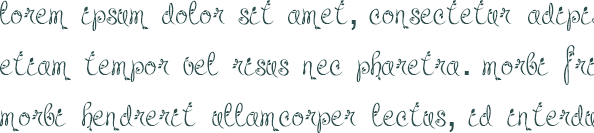 lorem ipsum dolor sit amet, consectetur adipis
etiam tempor vel risus nec pharetra. morbi fri
morbi hendrerit ullamcorper lectus, id interdu